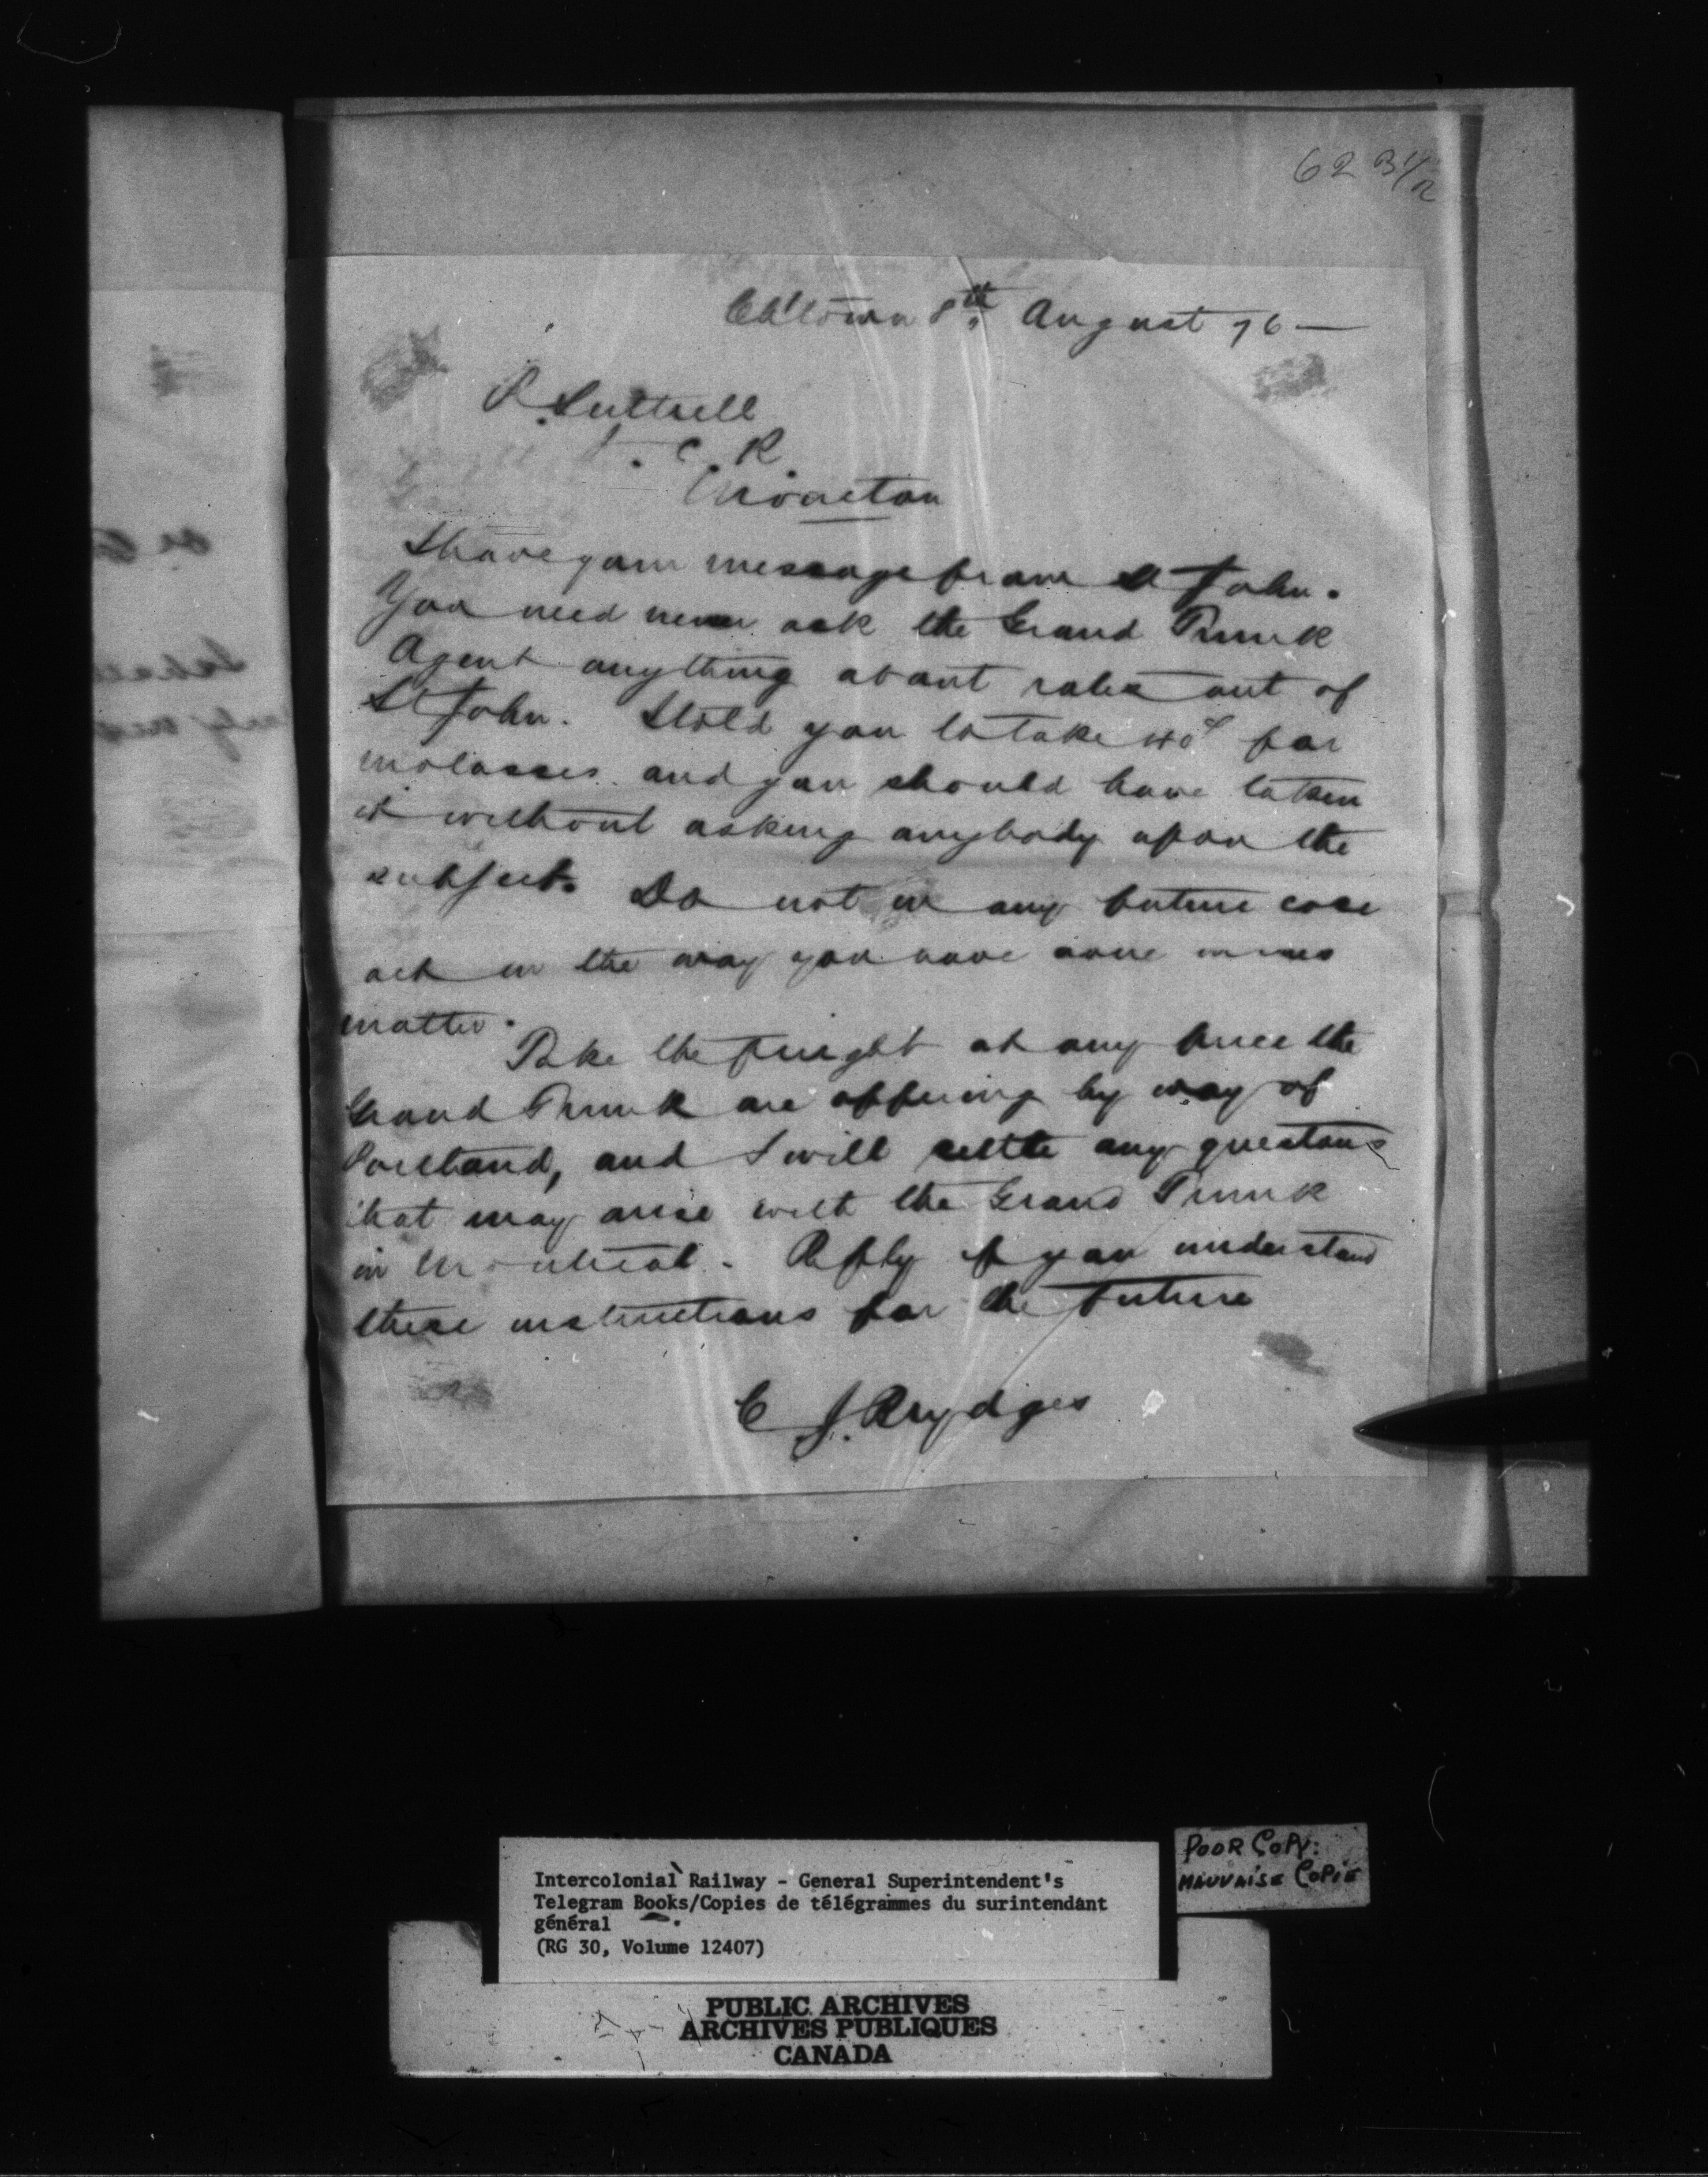 623 1/2
Ch'town 8th August 76 —
P. Luttrell
I. C. R.
Moncton
I have your message from St John.
You need never ask the Grand Trunk
Agent anything about rates out of
St John. I told you to take 40¢ for
molasses and you should have taken
it without asking anybody upon the
subject. Do not in any future case
act in the way you have done in this
matter.
Take the freight at any price the
Grand Trunk are offering by way of
Portland, and I will settle any questions
that may arise with the Grand Trunk
in Montreal. Reply if you understand
these instructions for the future
C J. Brydges
POOR COPY:
MAUVAISE COPIE
Intercolonial Railway - General Superintendent's
Telegram Books/Copies de télégrammes du surintendant
général
(RG 30, Volume 12407)
PUBLIC ARCHIVES
ARCHIVES PUBLIQUES
CANADA